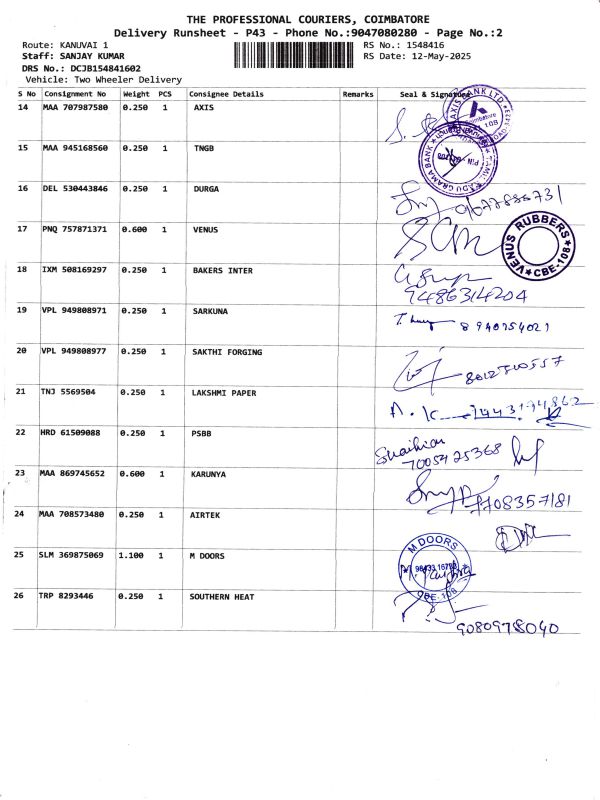 THE PROFESSIONAL COURIERS, COIMBATORE
Delivery Runsheet - P43 - Phone No.:9047080280 - Page No.:2
Route: KANUVAI 1 RS No.: 1548416
Staff: SANJAY KUMAR RS Date: 12-May-2025
DRS No.: DCJB154841602
Vehicle: Two Wheeler Delivery
S No Consignment No Weight PCS Consignee Details Remarks Seal & Signature
14 MAA 707987580 0.250 1 AXIS
AXIS BANK LTD
15 MAA 945168560 0.250 1 TNGB
16 DEL 530443846 0.250 1 DURGA
17 PNQ 757871371 0.600 1 VENUS
VENUS RUBBERS CBE-108
18 IXM 508169297 0.250 1 BAKERS INTER
9486314204
19 VPL 949808971 0.250 1 SARKUNA
8940754021
20 VPL 949808977 0.250 1 SAKTHI FORGING
21 TNJ 5569504 0.250 1 LAKSHMI PAPER
22 HRD 61509088 0.250 1 PSBB
7005425368
23 MAA 869745652 0.600 1 KARUNYA
24 MAA 708573480 0.250 1 AIRTEK
25 SLM 369875069 1.100 1 M DOORS
M DOORS CBE-108
26 TRP 8293446 0.250 1 SOUTHERN HEAT
9080978040